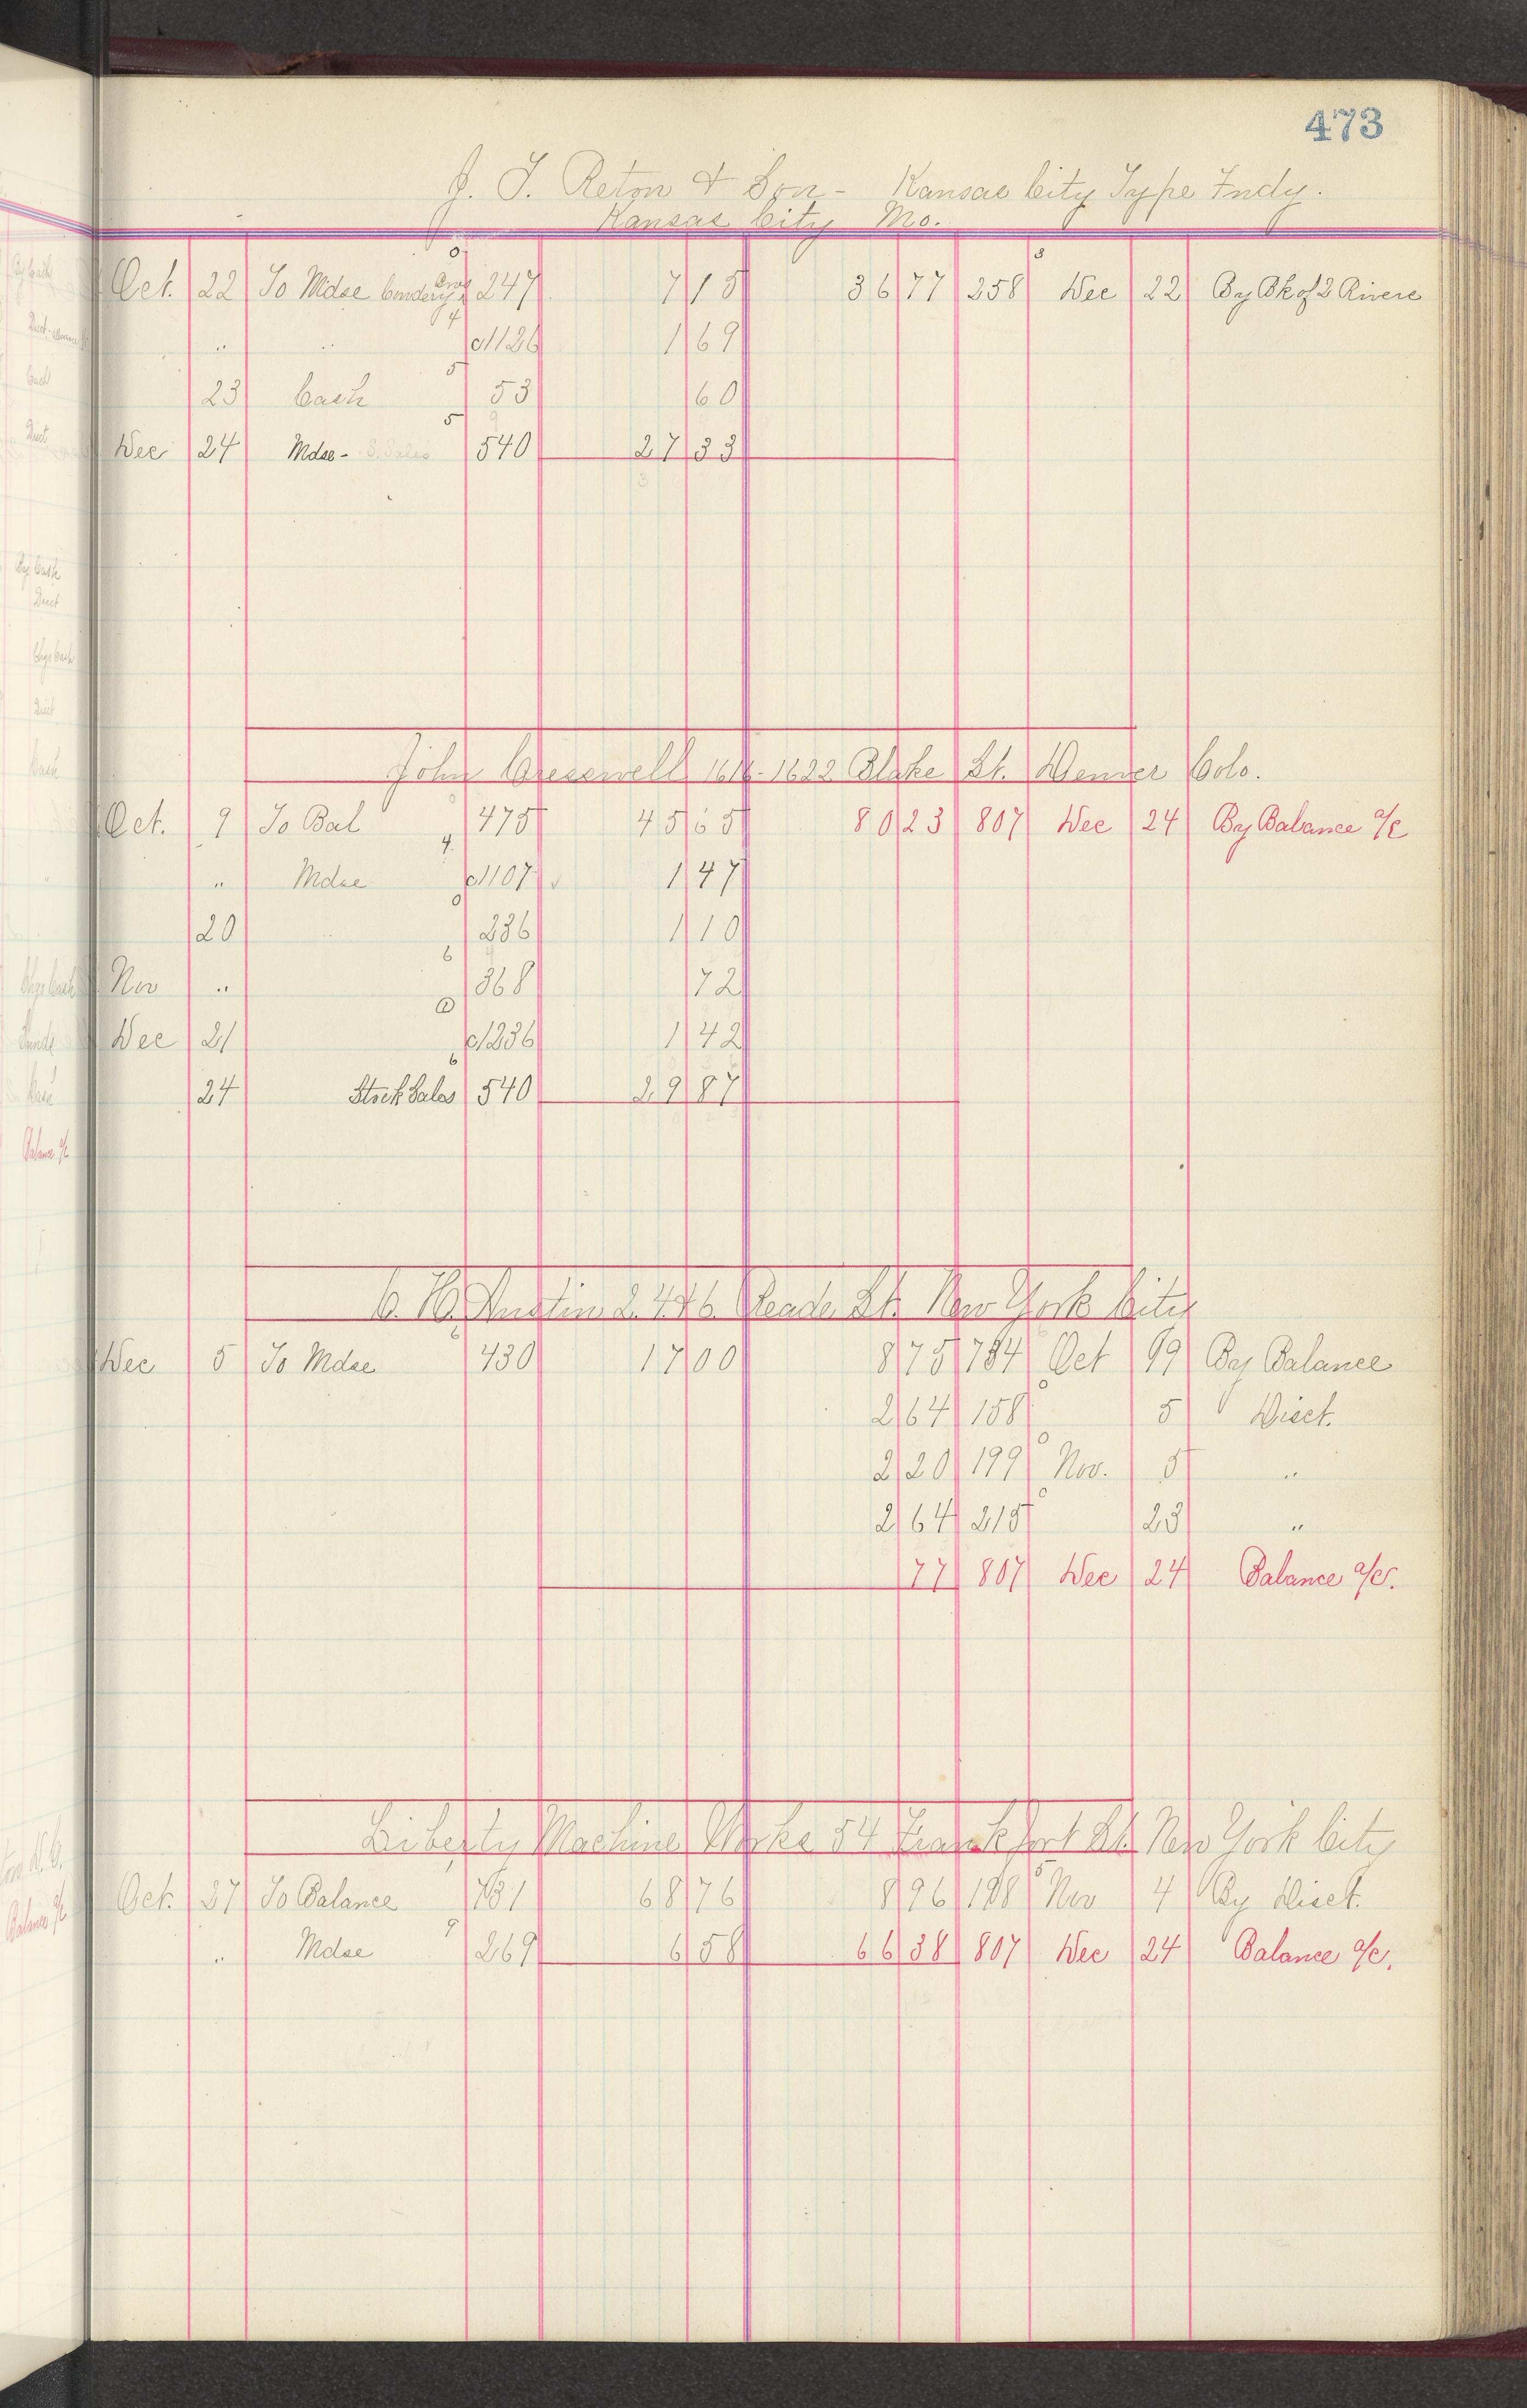 473
J. T. Reton & Son - Kansas City Type Fndy.
Kansas City Mo.
Oct. 22 To Mdse 247 7 15 36 77 258 Dec 22 By Bk of 2 Rivers
" " c1126 1 69
23 Cash 53 60
Dec 24 Mdse - S. Sales 540 27 33
John Cresswell 1616-1622 Blake St. Denver Colo.
Oct. 9 To Bal 475 45 65 80 23 807 Dec 24 By Balance a/c
" Mdse c1107 1 47
20 " 236 1 10
Nov " 368 72
Dec 21 c1236 1 42
24 Stock Sales 540 29 87
Austin 2.4.&6. Reade St. New York City
Dec 5 To Mdse 430 17 00 8 75 784 Oct 99 By Balance
2 64 158 5 Disct.
2 20 199 Nov. 5 "
2 64 215 23 "
77 807 Dec 24 Balance a/c.
Liberty Machine Works 54 Frankfort St. New York City
Oct. 27 To Balance 781 68 76 8 96 198 Nov 4 By Disct.
" Mdse 269 6 58 66 38 807 Dec 24 Balance a/c.